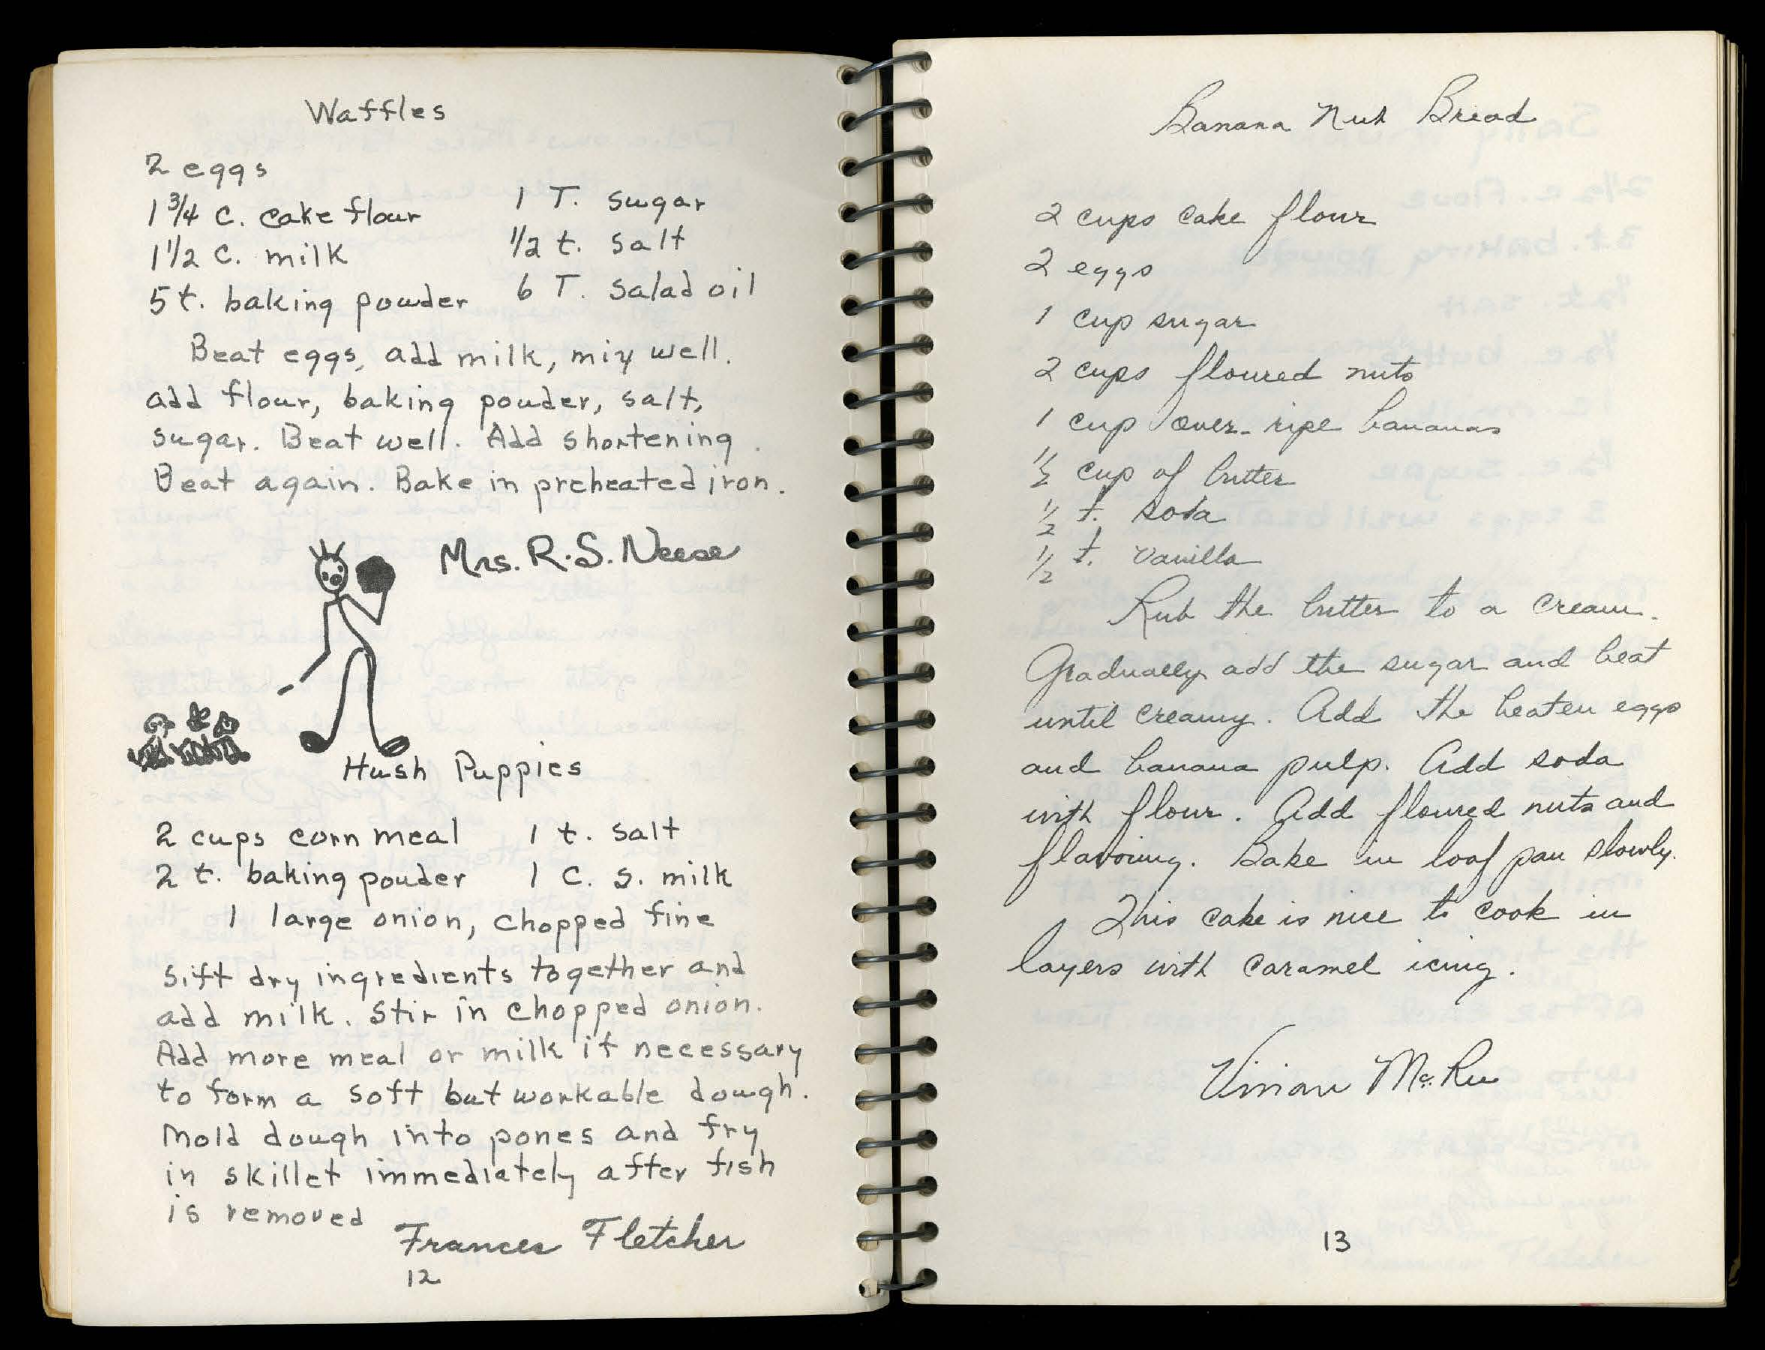 Waffles
2 eggs
1 3/4 c. cake flour
1 1/2 c. milk
5 t. baking powder
1 T. sugar
1/2 t. salt
6 T. salad oil
Beat eggs, add milk, mix well.
add flour, baking powder, salt,
sugar. Beat well. Add shortening.
Beat again. Bake in preheated iron.
Mrs. R. S. Neese
Hush Puppies
2 cups corn meal
2 t. baking powder
1 t. salt
1 C. s. milk
1 large onion, chopped fine
Sift dry ingredients together and
add milk. Stir in chopped onion.
Add more meal or milk if necessary
to form a soft but workable dough.
Mold dough into pones and fry
in skillet immediately after fish
is removed
Frances Fletcher
12
Banana Nut Bread
2 cups cake flour
2 eggs
1 cup sugar
2 cups floured nuts
1 cup over-ripe bananas
1/2 cup of butter
1/2 t. soda
1/2 t. vanilla
Rub the butter to a cream.
Gradually add the sugar and beat
until creamy. Add the beaten eggs
and banana pulp. Add soda
with flour. Add floured nuts and
flavoring. Bake in loaf pan slowly.
This cake is nice to cook in
layers with caramel icing.
Vivian
13